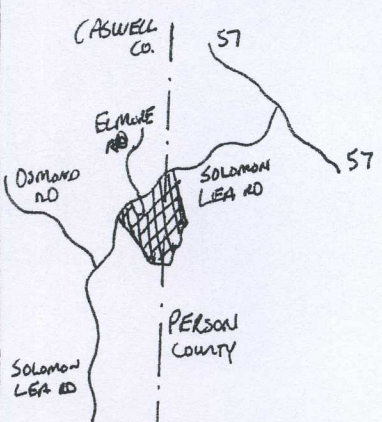 CASWELL
CO.
57
ELMORE
RD
OSMOND
RD
SOLOMON
LEA RD
57
PERSON
COUNTY
SOLOMON
LEA RD